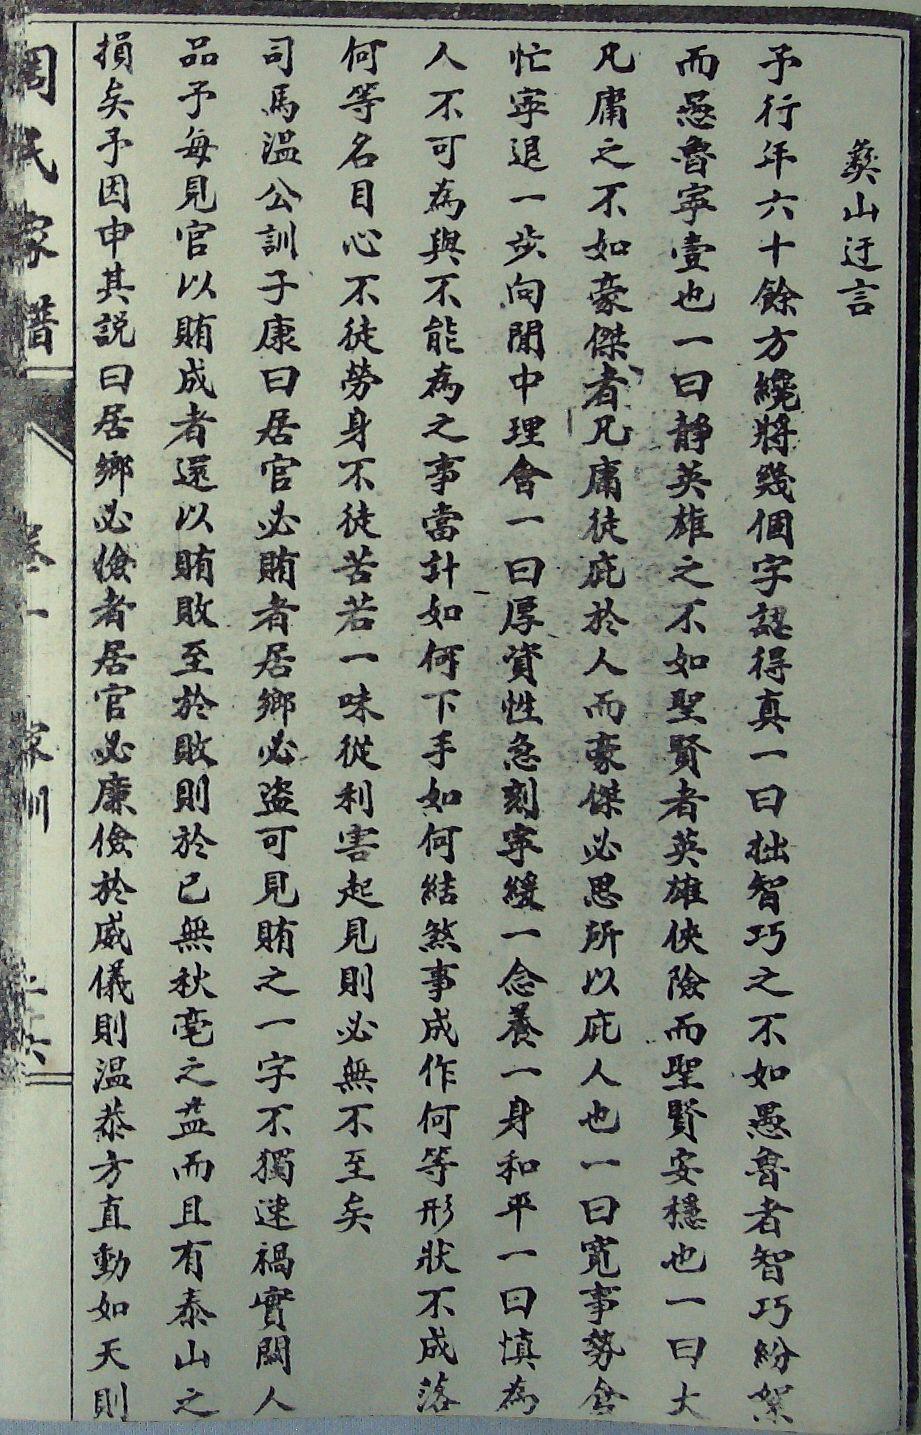 彜山迂言
予行年六十餘方纔將幾個字認得真一曰拙智巧之不如愚魯者智巧紛絮
而愚魯寧壹也一曰靜英雄之不如聖賢者英雄俠險而聖賢安穩也一曰大
凡庸之不如豪傑者凡庸徒庇於人而豪傑必思所以庇人也一曰寬事勢倉
忙寧退一步向閒中理會一曰厚資性急刻寧緩一念養一身和平一曰慎為
人不可為與不能為之事當計如何下手如何結煞事成作何等形狀不成落
何等名目心不徒勞身不徒苦若一味從利害起見則必無不至矣
司馬溫公訓子康曰居官必賄者居鄉必盜可見賄之一字不獨速禍實關人
品予每見官以賄成者還以賄敗至於敗則於己無秋毫之益而且有泰山之
損矣予因申其說曰居鄉必儉者居官必廉儉於威儀則溫恭方直動如天則
周氏家譜 卷一 家訓